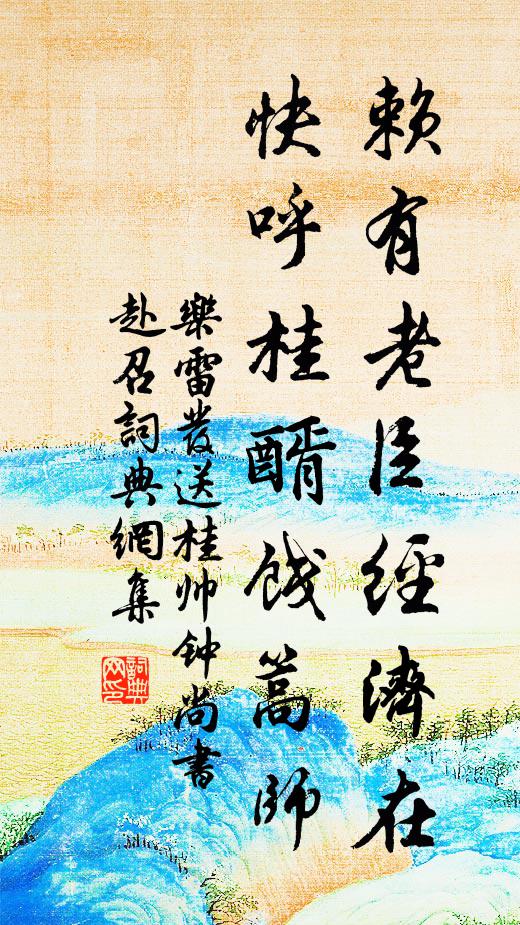 賴有老臣經濟在
快呼桂醑餞篙師
樂雷發送桂帅钟尚書
赴召詞典網集
詞典網印